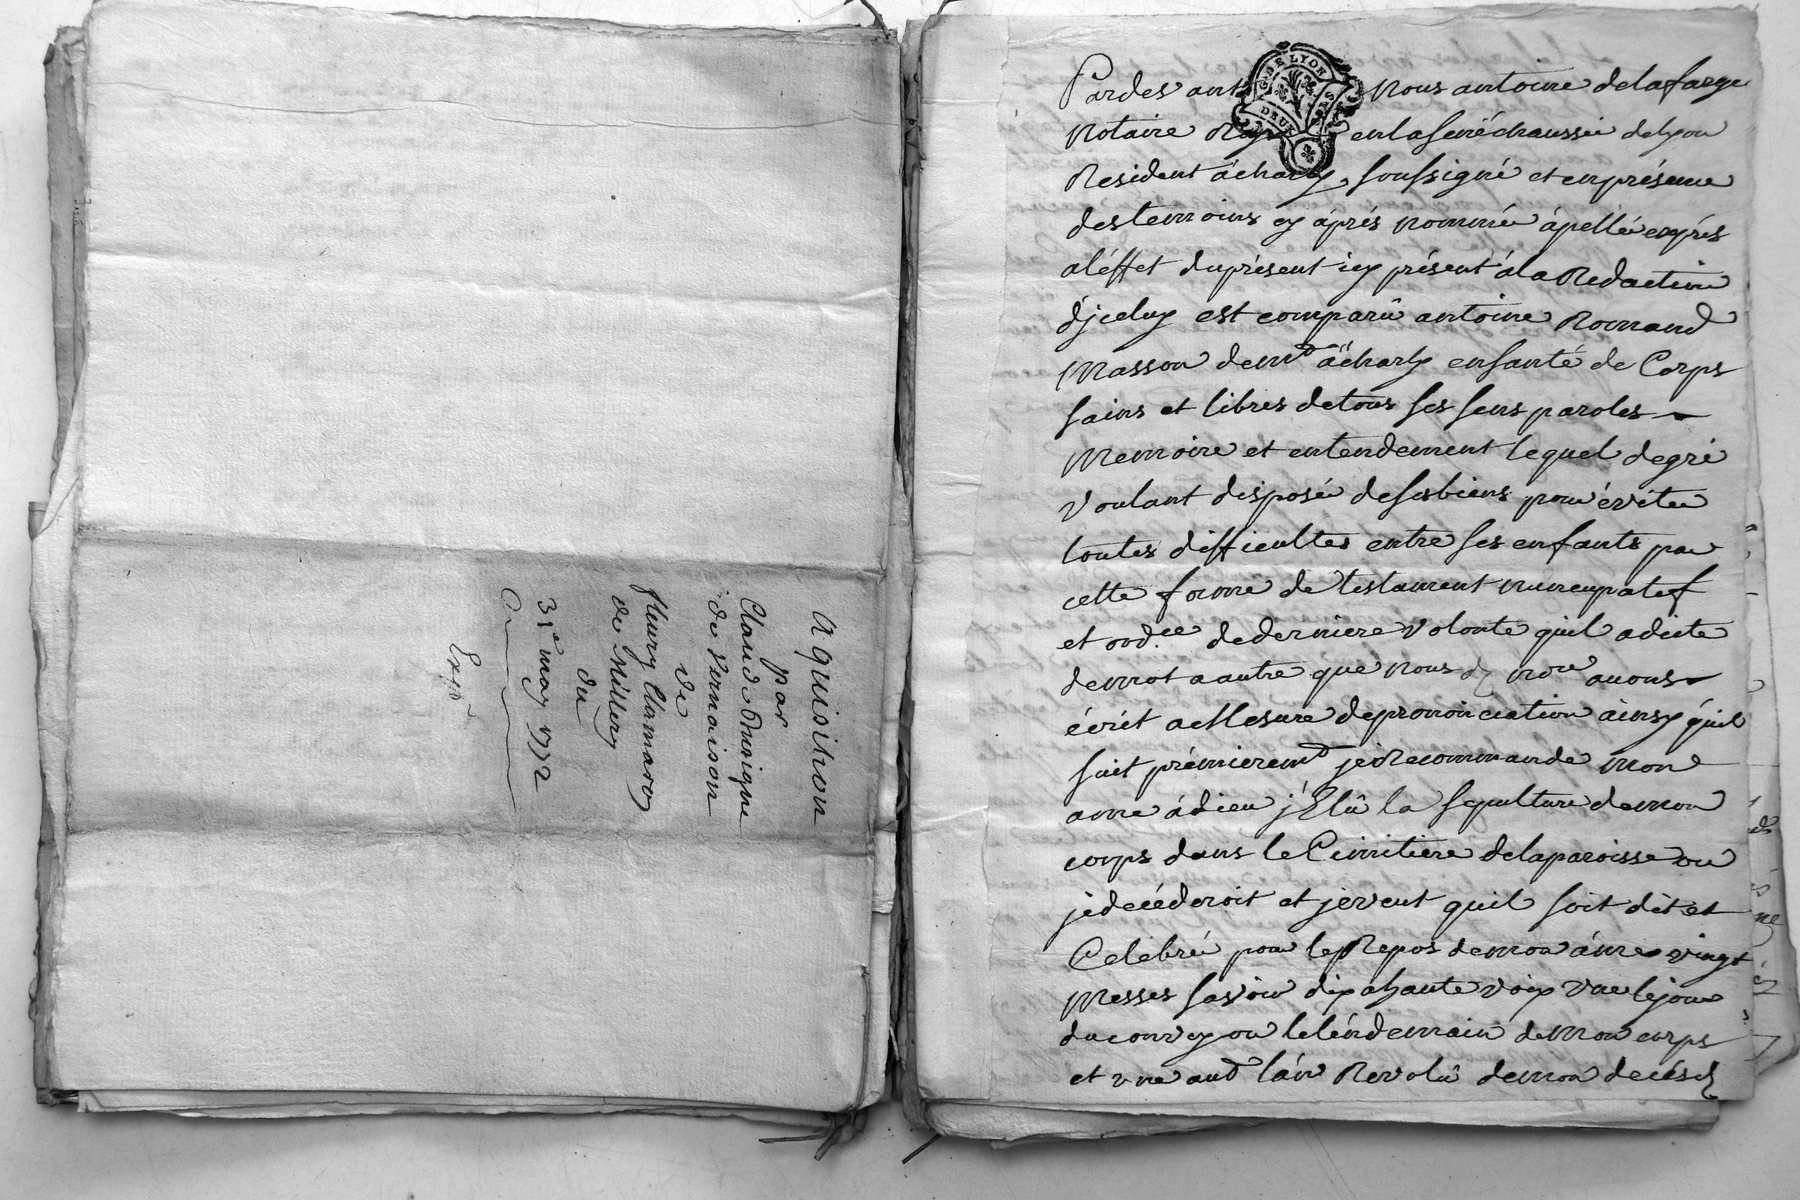 Aquisition
par
Claude Dunique
de Vernaison
de
fleury Clamaron
de Millery
du
31e may 1772
Exp.d
G. DE LYON
DEUX
Pardevant Nous antoine delafarge
Notaire Royal en la Senéchaussée de lyon
Resident à charly, soussigné et en présence
des temoins cy aprés nommé apellé exprés
al éffet du présent icy présent à la Redaction
d'jceluy est comparû antoine Romand
Masson dem.t à charly en santé de Corps
sains et libres de tous ses sens paroles
Memoire et entendement lequel de gré
Voulant disposé de ses biens pour évitér
toutes difficultes entre ses enfants par
cette forme de testament nuncupatif
et ord.ce de derniere Volonté quil a dicté
de mot a autre que nous d. no.re avons
écrit a Mesure de prononciation ainsy quil
suit prémierem.t je Recommande mon
ame à dieu j'Elû la sepulture de mon
corps dans le Cimitiere de la paroisse ou
je decéderoit et je veut quil soit dit et
Celébré pour le Repos de mon ame vingt
Messes savoir dix a haute voix une le jour
du convoy ou le léndemain de mon corps
et une au d. l'an Revolû de mon decés